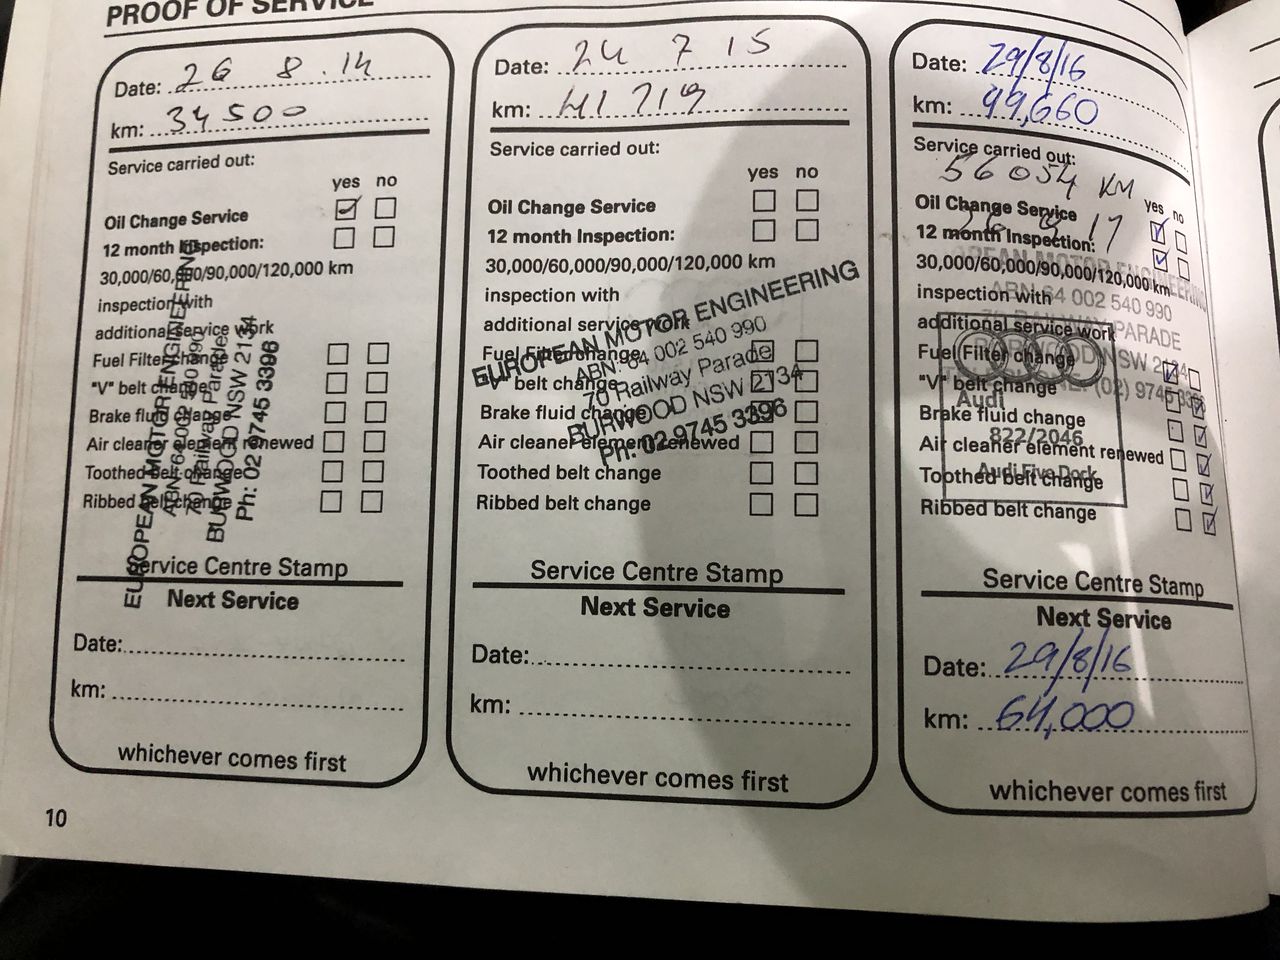 PROOF OF SERVICE
Date: 26 8 . 14
km: 34500
Service carried out:
yes no
Oil Change Service
12 month Inspection:
30,000/60,000/90,000/120,000 km
inspection with
additional service work
Fuel Filter change
"V" belt change
Brake fluid change
Air cleaner element renewed
Toothed belt change
Ribbed belt change
EUROPEAN MOTOR ENGINEERING
ABN: 64 002 540 990
70 Railway Parade
BURWOOD NSW 2134
Ph: 02 9745 3396
Service Centre Stamp
Next Service
Date:
km:
whichever comes first
10
Date: 24 7 15
km: 41719
Service carried out:
yes no
Oil Change Service
12 month Inspection:
30,000/60,000/90,000/120,000 km
inspection with
additional service work
Fuel Filter change
"V" belt change
Brake fluid change
Air cleaner element renewed
Toothed belt change
Ribbed belt change
EUROPEAN MOTOR ENGINEERING
ABN: 64 002 540 990
70 Railway Parade
BURWOOD NSW 2134
Ph: 02 9745 3396
Service Centre Stamp
Next Service
Date:
km:
whichever comes first
Date: 29/8/16
km: 49,660
Service carried out:
56054 KM
yes no
Oil Change Service
17
12 month Inspection:
30,000/60,000/90,000/120,000 km
inspection with
additional service work
Fuel Filter change
"V" belt change
Brake fluid change
Air cleaner element renewed
Toothed belt change
Ribbed belt change
EUROPEAN MOTOR ENGINEERING
ABN 64 002 540 990
70 RAILWAY PARADE
BURWOOD NSW 2134
TELEPHONE: (02) 9745 3396
Audi
822/2046
Audi Five Dock
Service Centre Stamp
Next Service
Date: 29/8/16
km: 64,000
whichever comes first